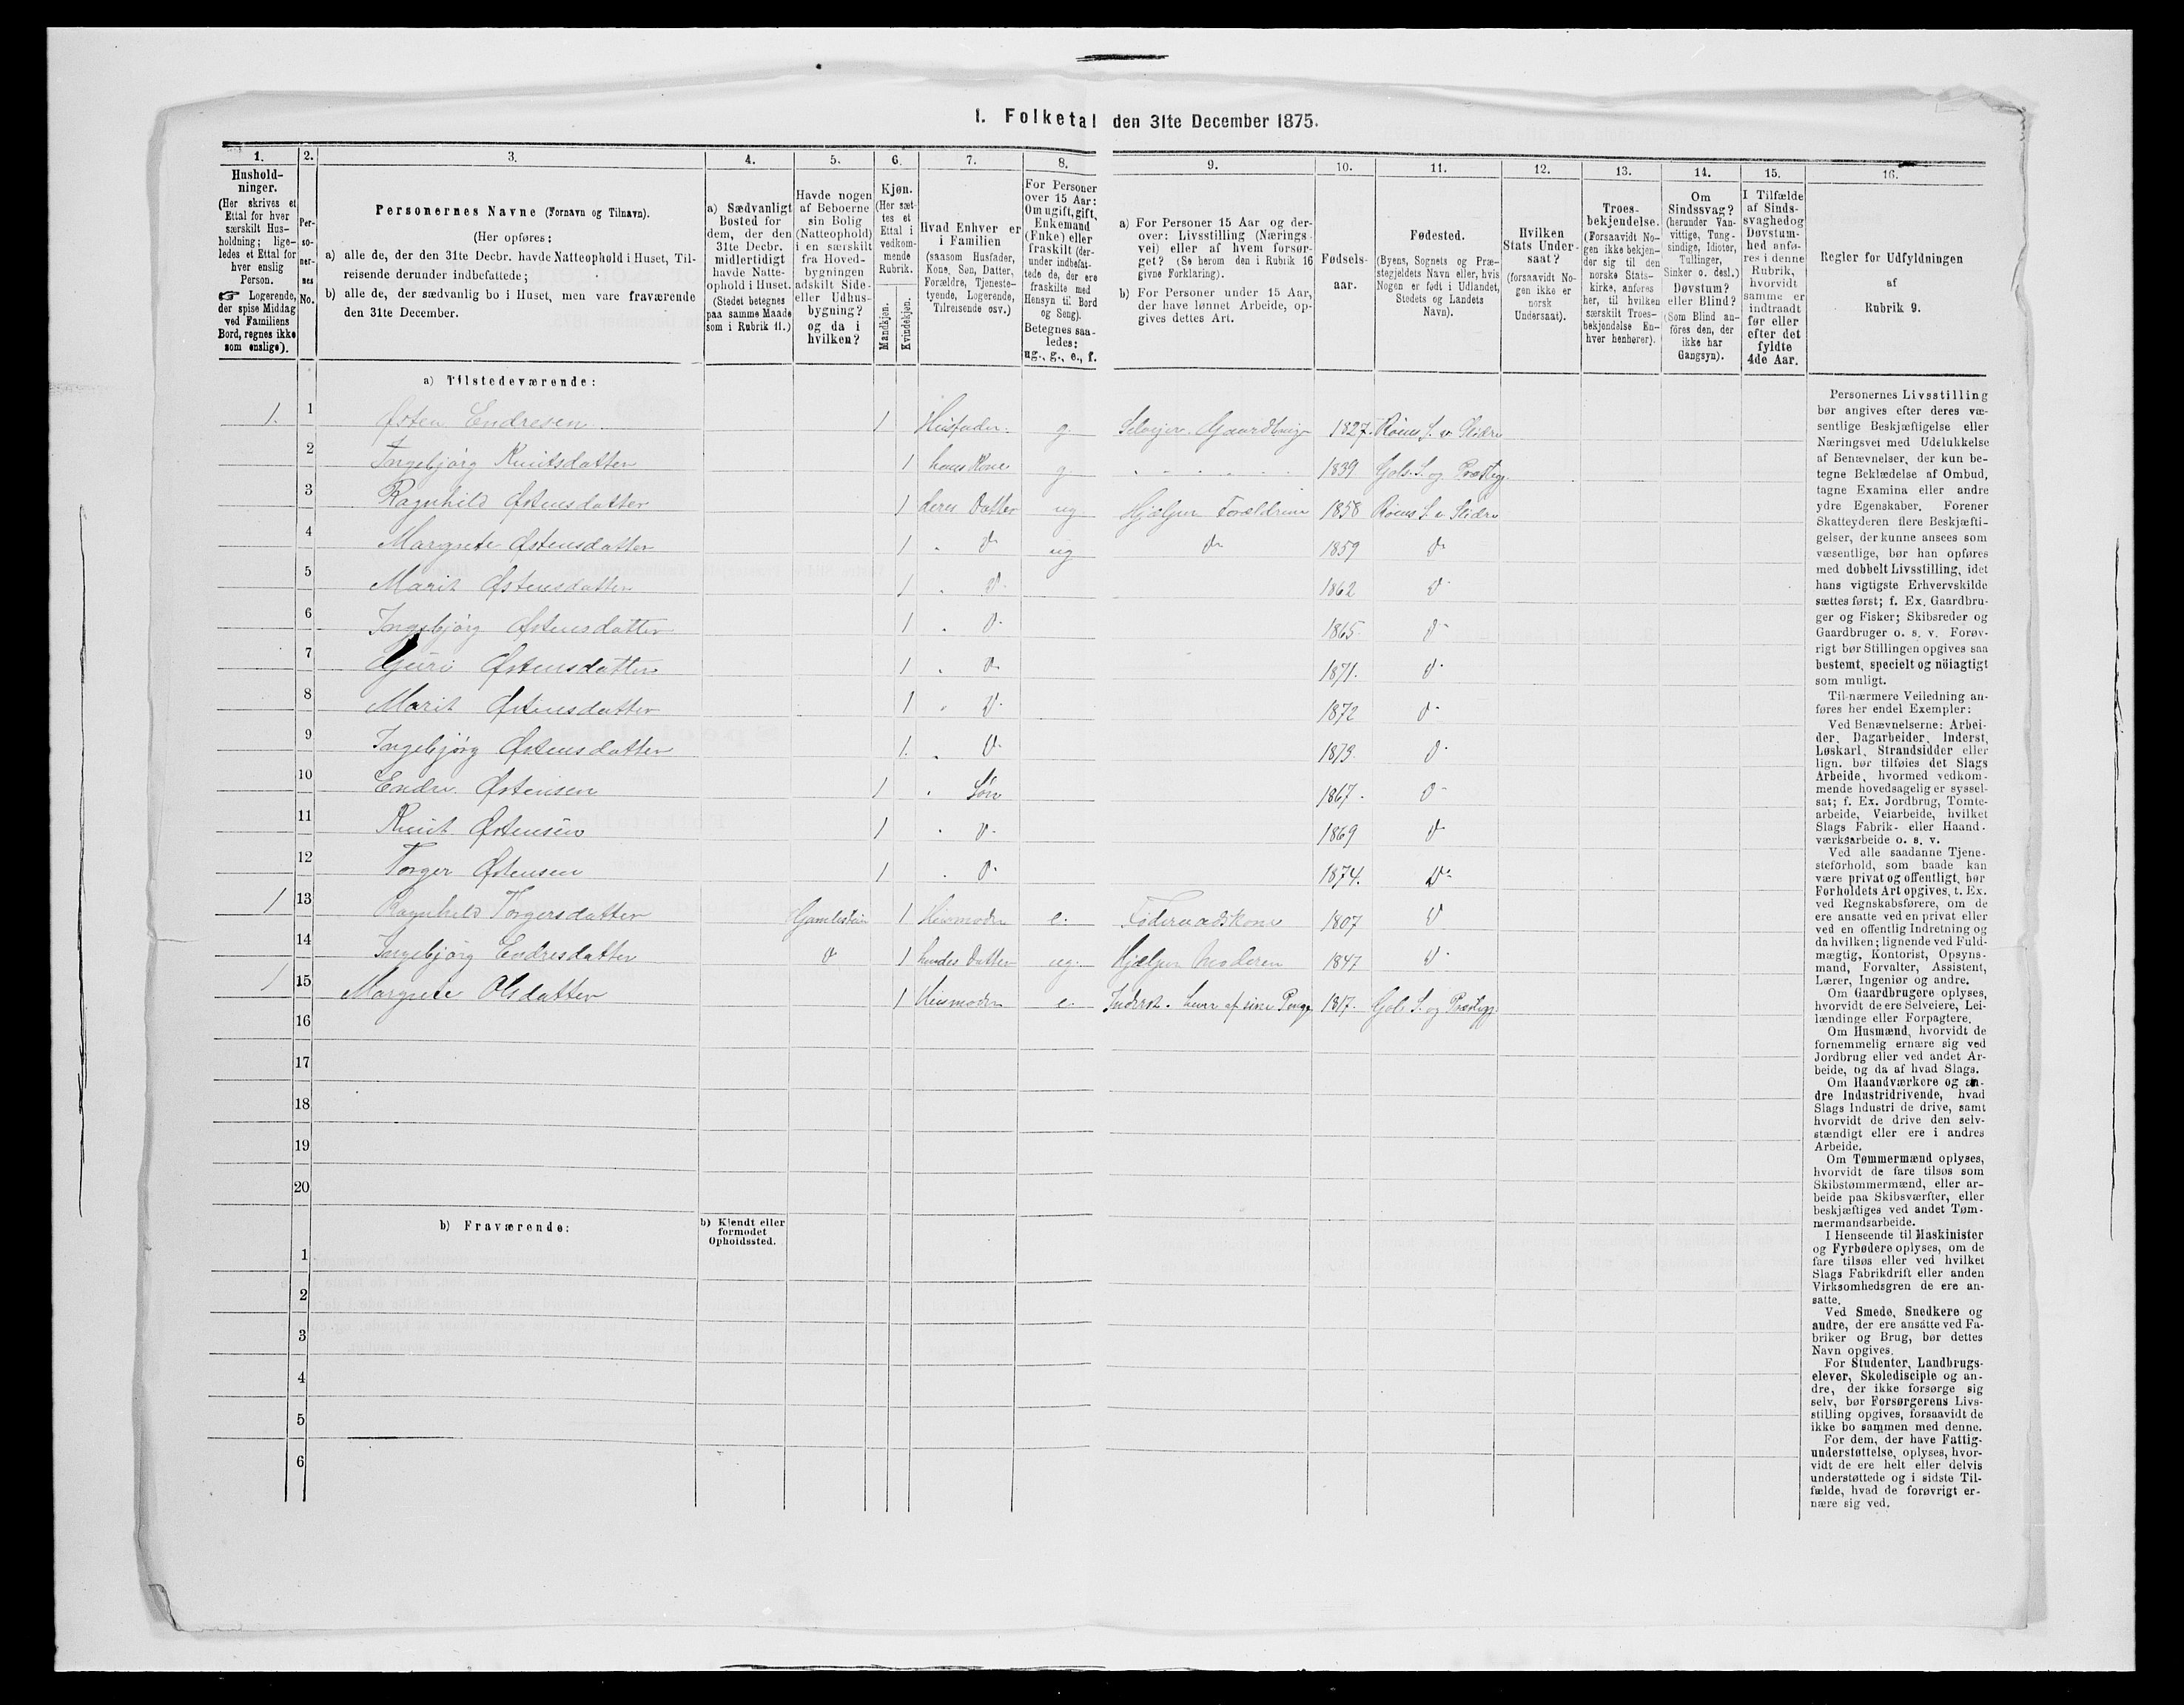 1. Folketal den 31te December 1875.
1. 2. 3. 4. 5. 6. 7. 8. 9. 10. 11. 12. 13. 14. 15. 16.
Hushold-
ninger.
(Her skrives et
Ettal for hver
særskilt Hus-
holdning; lige-
ledes et Ettal for
hver enslig
Person.
☞ Logerende,
der spise Middag
ved Familiens
Bord, regnes ikke
som enslige).
Per-
so-
ner-
nes
No.
Personernes Navne (Fornavn og Tilnavn).
(Her opføres:
a) alle de, der den 31te Decbr. havde Natteophold i Huset, Til-
reisende derunder indbefattede;
b) alle de, der sædvanlig bo i Huset, men vare fraværende
den 31te December.
a) Sædvanligt
Bosted for
dem, der den
31te Decbr.
midlertidigt
havde Natte-
ophold i Huset.
(Stedet betegnes
paa samme Maade
som i Rubrik 11.)
Havde nogen
af Beboerne
sin Bolig
(Natteophold)
i en særskilt
fra Hoved-
bygningen
adskilt Side-
eller Udhus-
bygning?
og da i
hvilken?
Kjøn.
(Her sæt-
tes et
Ettal i
vedkom-
mende
Rubrik.
Mandkjøn.
Kvindekjøn.
Hvad Enhver er
i Familien
(saasom Husfader,
Kone, Søn, Datter,
Forældre, Tjeneste-
tyende, Logerende,
Tilreisende osv.)
For Personer
over 15 Aar:
Om ugift, gift,
Enkemand
(Enke) eller
fraskilt (der-
under indbefat-
tede de, der ere
fraskilte med
Hensyn til Bord
og Seng).
Betegnes saa-
ledes:
ug., g., e., f.
a) For Personer 15 Aar og der-
over: Livsstilling (Nærings-
vei) eller af hvem forsør-
get? (Se herom den i Rubrik 16
givne Forklaring).
b) For Personer under 15 Aar,
der have lønnet Arbeide, op-
gives dettes Art.
Fødsels-
aar.
Fødested.
(Byens, Sognets og Præ-
stegjeldets Navn eller, hvis
Nogen er født i Udlandet,
Stedets og Landets
Navn).
Hvilken
Stats Under-
saat?
(forsaavidt No-
gen ikke er
norsk
Undersaat).
Troes-
bekjendelse.
(Forsaavidt No-
gen ikke bekjen-
der sig til den
norske Stats-
kirke, anføres
her, til hvilken
særskilt Troes-
bekjendelse En-
hver henhører).
Om
Sindssvag?
(herunder Van-
vittige, Tung-
sindige, Idioter,
Tullinger,
Sinker o. desl.)
Døvstum?
eller Blind?
(Som Blind an-
føres den, der
ikke har
Gangsyn).
I Tilfælde
af Sinds-
svaghed og
Døvstum-
hed anfø-
res i denne
Rubrik,
hvorvidt
samme er
indtraadt
før eller
efter det
fyldte
4de Aar.
Regler for Udfyldningen
af
Rubrik 9.
a) Tilstedeværende:
1. 1 Østen Endresen 1 Husfader. g. Selveier. Gaardbruger 1827. Røens S. v. Slidre
2 Ingebjørg Knutsdatter 1 hans Kone g. 1839 Gols S. og Præstegj.
3 Ragnhild Østensdatter 1 deres Datter ug Hjælper Forældrene 1858 Røens S. v. Slidre
4 Margrete Østensdatter 1 " do ug do 1859 do
5 Marit Østensdatter 1 " do 1862 do
6 Ingebjørg Østensdatter 1 " do 1865 do
7 Guri Østensdatter 1 " do 1871. do
8 Marit Østensdatter 1 " do 1872 do
9 Ingebjørg Østensdatter 1. " do 1873 do
10 Endre Østensen 1 " Søn 1867 do
11 Knut Østensen 1 " do 1869 do
12 Torger Østensen 1 " do 1874. do
1 13 Ragnhild Torgersdatter 1 Husmoder e. Føderaadskone 1807 do
14 Ingebjørg Endresdatter do 1 hendes Datter ug. Hjælper Moderen 1847 do
1 15 Margrete Olsdatter 1 Husmoder e. Inderst. Lever af sine Penge 1817. Gols S. og Præstegj.
16
17
18
19
20
b) Fraværende:
b) Kjendt eller
formodet
Opholdssted.
1
2
3
4
5
6
Personernes Livsstilling
bør angives efter deres væ-
sentlige Beskjæftigelse eller
Næringsvei med Udelukkelse
af Benævnelser, der kun be-
tegne Beklædelse af Ombud,
tagne Examina eller andre
ydre Egenskaber. Forener
Skatteyderen flere Beskjæfti-
gelser, der kunne ansees som
væsentlige, bør han opføres
med dobbelt Livsstilling, idet
hans vigtigste Erhvervskilde
sættes først; f. Ex. Gaardbru-
ger og Fisker; Skibsreder og
Gaardbruger o. s. v. Forøv-
rigt bør Stillingen opgives saa
bestemt, specielt og nöiagtigt
som muligt.
Til nærmere Veiledning an-
føres her endel Exempler:
Ved Benævnelserne: Arbei-
der, Dagarbeider, Inderst,
Løskarl, Strandsidder eller
lign. bør tilføies det Slags
Arbeide, hvormed vedkom-
mende hovedsagelig er syssel-
sat; f. Ex. Jordbrug, Tomte-
arbeide, Veiarbeide, hvilket
Slags Fabrik- eller Haand-
værksarbeide o. s. v.
Ved alle saadanne Tjene-
steforhold, som baade kan
være privat og offentligt, bør
Forholdets Art opgives, t. Ex.
ved Regnskabsførere, om de
ere ansatte ved en privat eller
ved en offentlig Indretning og
da hvilken; lignende ved Fuld-
mægtig, Kontorist, Opsyns-
mand, Forvalter, Assistent,
Lærer, Ingeniør og andre.
Om Gaardbrugere oplyses,
hvorvidt de ere Selveiere, Lei-
lændinge eller Forpagtere.
Om Husmænd, hvorvidt de
fornemmelig ernære sig ved
Jordbrug eller ved andet Ar-
beide, og da af hvad Slags.
Om Haandværkere og an-
dre Industridrivende, hvad
Slags Industri de drive, samt
hvorvidt de drive den selv-
stændigt eller ere i andres
Arbeide.
Om Tømmermænd oplyses,
hvorvidt de fare tilsøs som
Skibstømmermænd, eller ar-
beide paa Skibsværfter, eller
beskjæftiges ved andet Tøm-
mermandsarbeide.
I Henseende til Maskinister
og Fyrbødere oplyses, om de
fare tilsøs eller ved hvilket
Slags Fabrikdrift eller anden
Virksomhedsgren de ere an-
satte.
Ved Smede, Snedkere og
andre, der ere ansatte ved Fa-
briker og Brug, bør dettes
Navn opgives.
For Studenter, Landbrugs-
elever, Skoledisciple og an-
dre, der ikke forsørge sig
selv, bør Forsørgerens Livs-
stilling opgives, forsaavidt de
ikke bo sammen med denne.
For dem, der have Fattig-
understøttelse, oplyses, hvor-
vidt de ere helt eller delvis
understøttede og i sidste Til-
fælde, hvad de forøvrigt er-
nære sig ved.